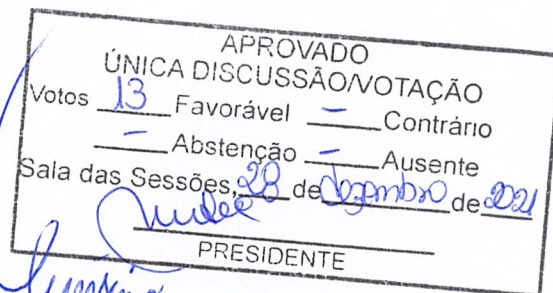 APROVADO
ÚNICA DISCUSSÃO/VOTAÇÃO
Votos 13 Favorável – Contrário
– Abstenção – Ausente
Sala das Sessões, 28 de dezembro de 2021
PRESIDENTE